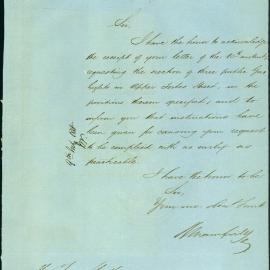 Sir,
I have the honor to acknowledge
the receipt of your letter of the 10th instant,
requesting the erection of three public Gas
Lights in Upper Forbes Street, in the
positions therein specified, and to
inform you that instructions have
been given for causing your request
to be complied with as early as
practicable.
I have the honor to be
Sir,
Your most Obedt Servt